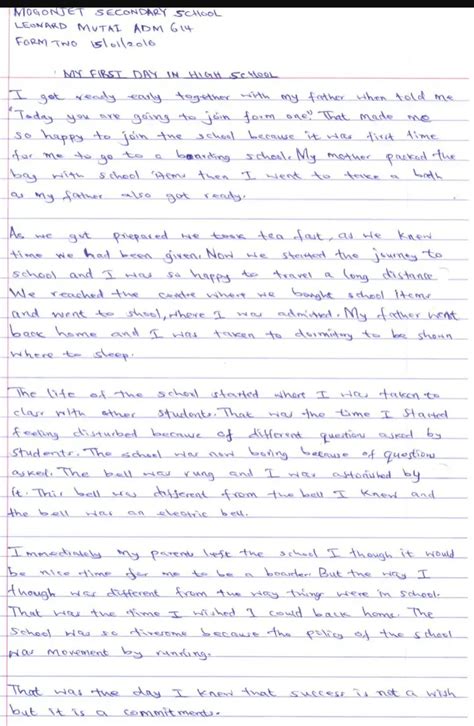 MOGONJET SECONDARY SCHOOL
LEONARD MUTAI ADM 614
FORM TWO 15/01/2016
MY FIRST DAY IN HIGH SCHOOL
I got ready early together with my father when told me
"Today you are going to join form one". That made me
so happy to join the school because it was first time
for me to go to a boarding school. My mother packed the
bag with school items then I went to take a bath
as my father also got ready.
As we got prepared we took tea fast, as we knew
time we had been given. Now we started the journey to
school and I was so happy to travel a long distance
We reached the centre where we bought school items
and went to shool, where I was admitted. My father went
back home and I was taken to dormitory to be shown
where to sleep.
The life of the school started where I was taken to
class with other students. That was the time I started
feeling disturbed because of different question asked by
students. The school was now boring because of question
asked. The bell was rung and I was astonished by
it. This bell was different from the bell I knew and
the bell was an electric bell.
Immediately my parents left the school I though it would
be nice time for me to be a boarder. But the way I
though was different from the way things were in school.
That was the time I wished I could back home. The
school was so tiresome because the policy of the school
was movement by running.
That was the day I knew that success is not a wish
but it is a commitment.